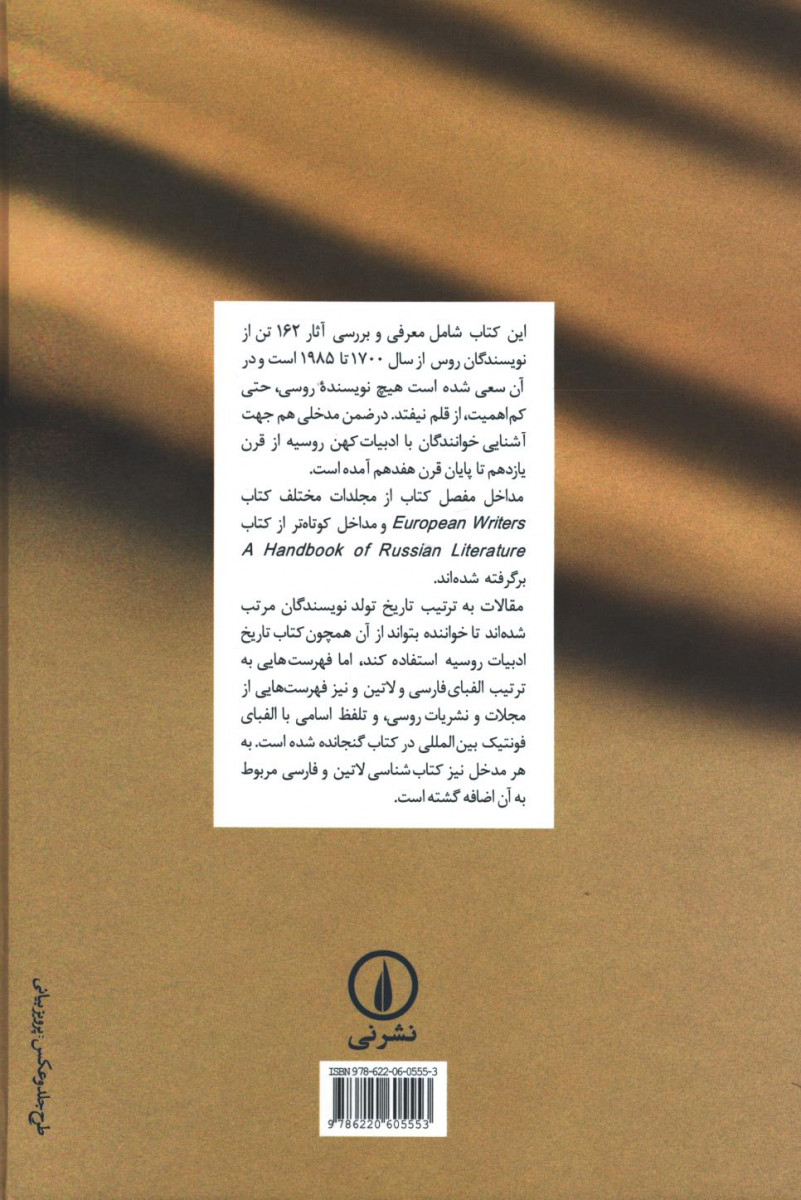 این کتاب شامل معرفی و بررسی آثار ۱۶۲ تن از
نویسندگان روس از سال ۱۷۰۰ تا ۱۹۸۵ است و در
آن سعی شده است هیچ نویسندهٔ روسی، حتی
کم‌اهمیت، از قلم نیفتد. در ضمن مدخلی هم جهت
آشنایی خوانندگان با ادبیات کهن روسیه از قرن
یازدهم تا پایان قرن هفدهم آمده است.
مداخل مفصل کتاب از مجلدات مختلف کتاب
European Writers و مداخل کوتاه‌تر از کتاب
A Handbook of Russian Literature
برگرفته شده‌اند.
مقالات به ترتیب تاریخ تولد نویسندگان مرتب
شده‌اند تا خواننده بتواند از آن همچون کتاب تاریخ
ادبیات روسیه استفاده کند، اما فهرست‌هایی به
ترتیب الفبای فارسی و لاتین و نیز فهرست‌هایی از
مجلات و نشریات روسی، و تلفظ اسامی با الفبای
فونتیک بین‌المللی در کتاب گنجانده شده است. به
هر مدخل نیز کتاب‌شناسی لاتین و فارسی مربوط
به آن اضافه گشته است.
نشر نی
ISBN 978-622-06-0555-3
9 786220 605553
طرح جلد و عکس: پرویز بیانی